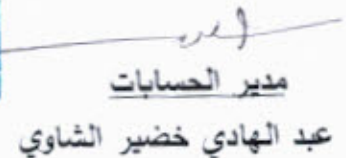 مدير الحسابات
عبد الهادي خضير الشاوي